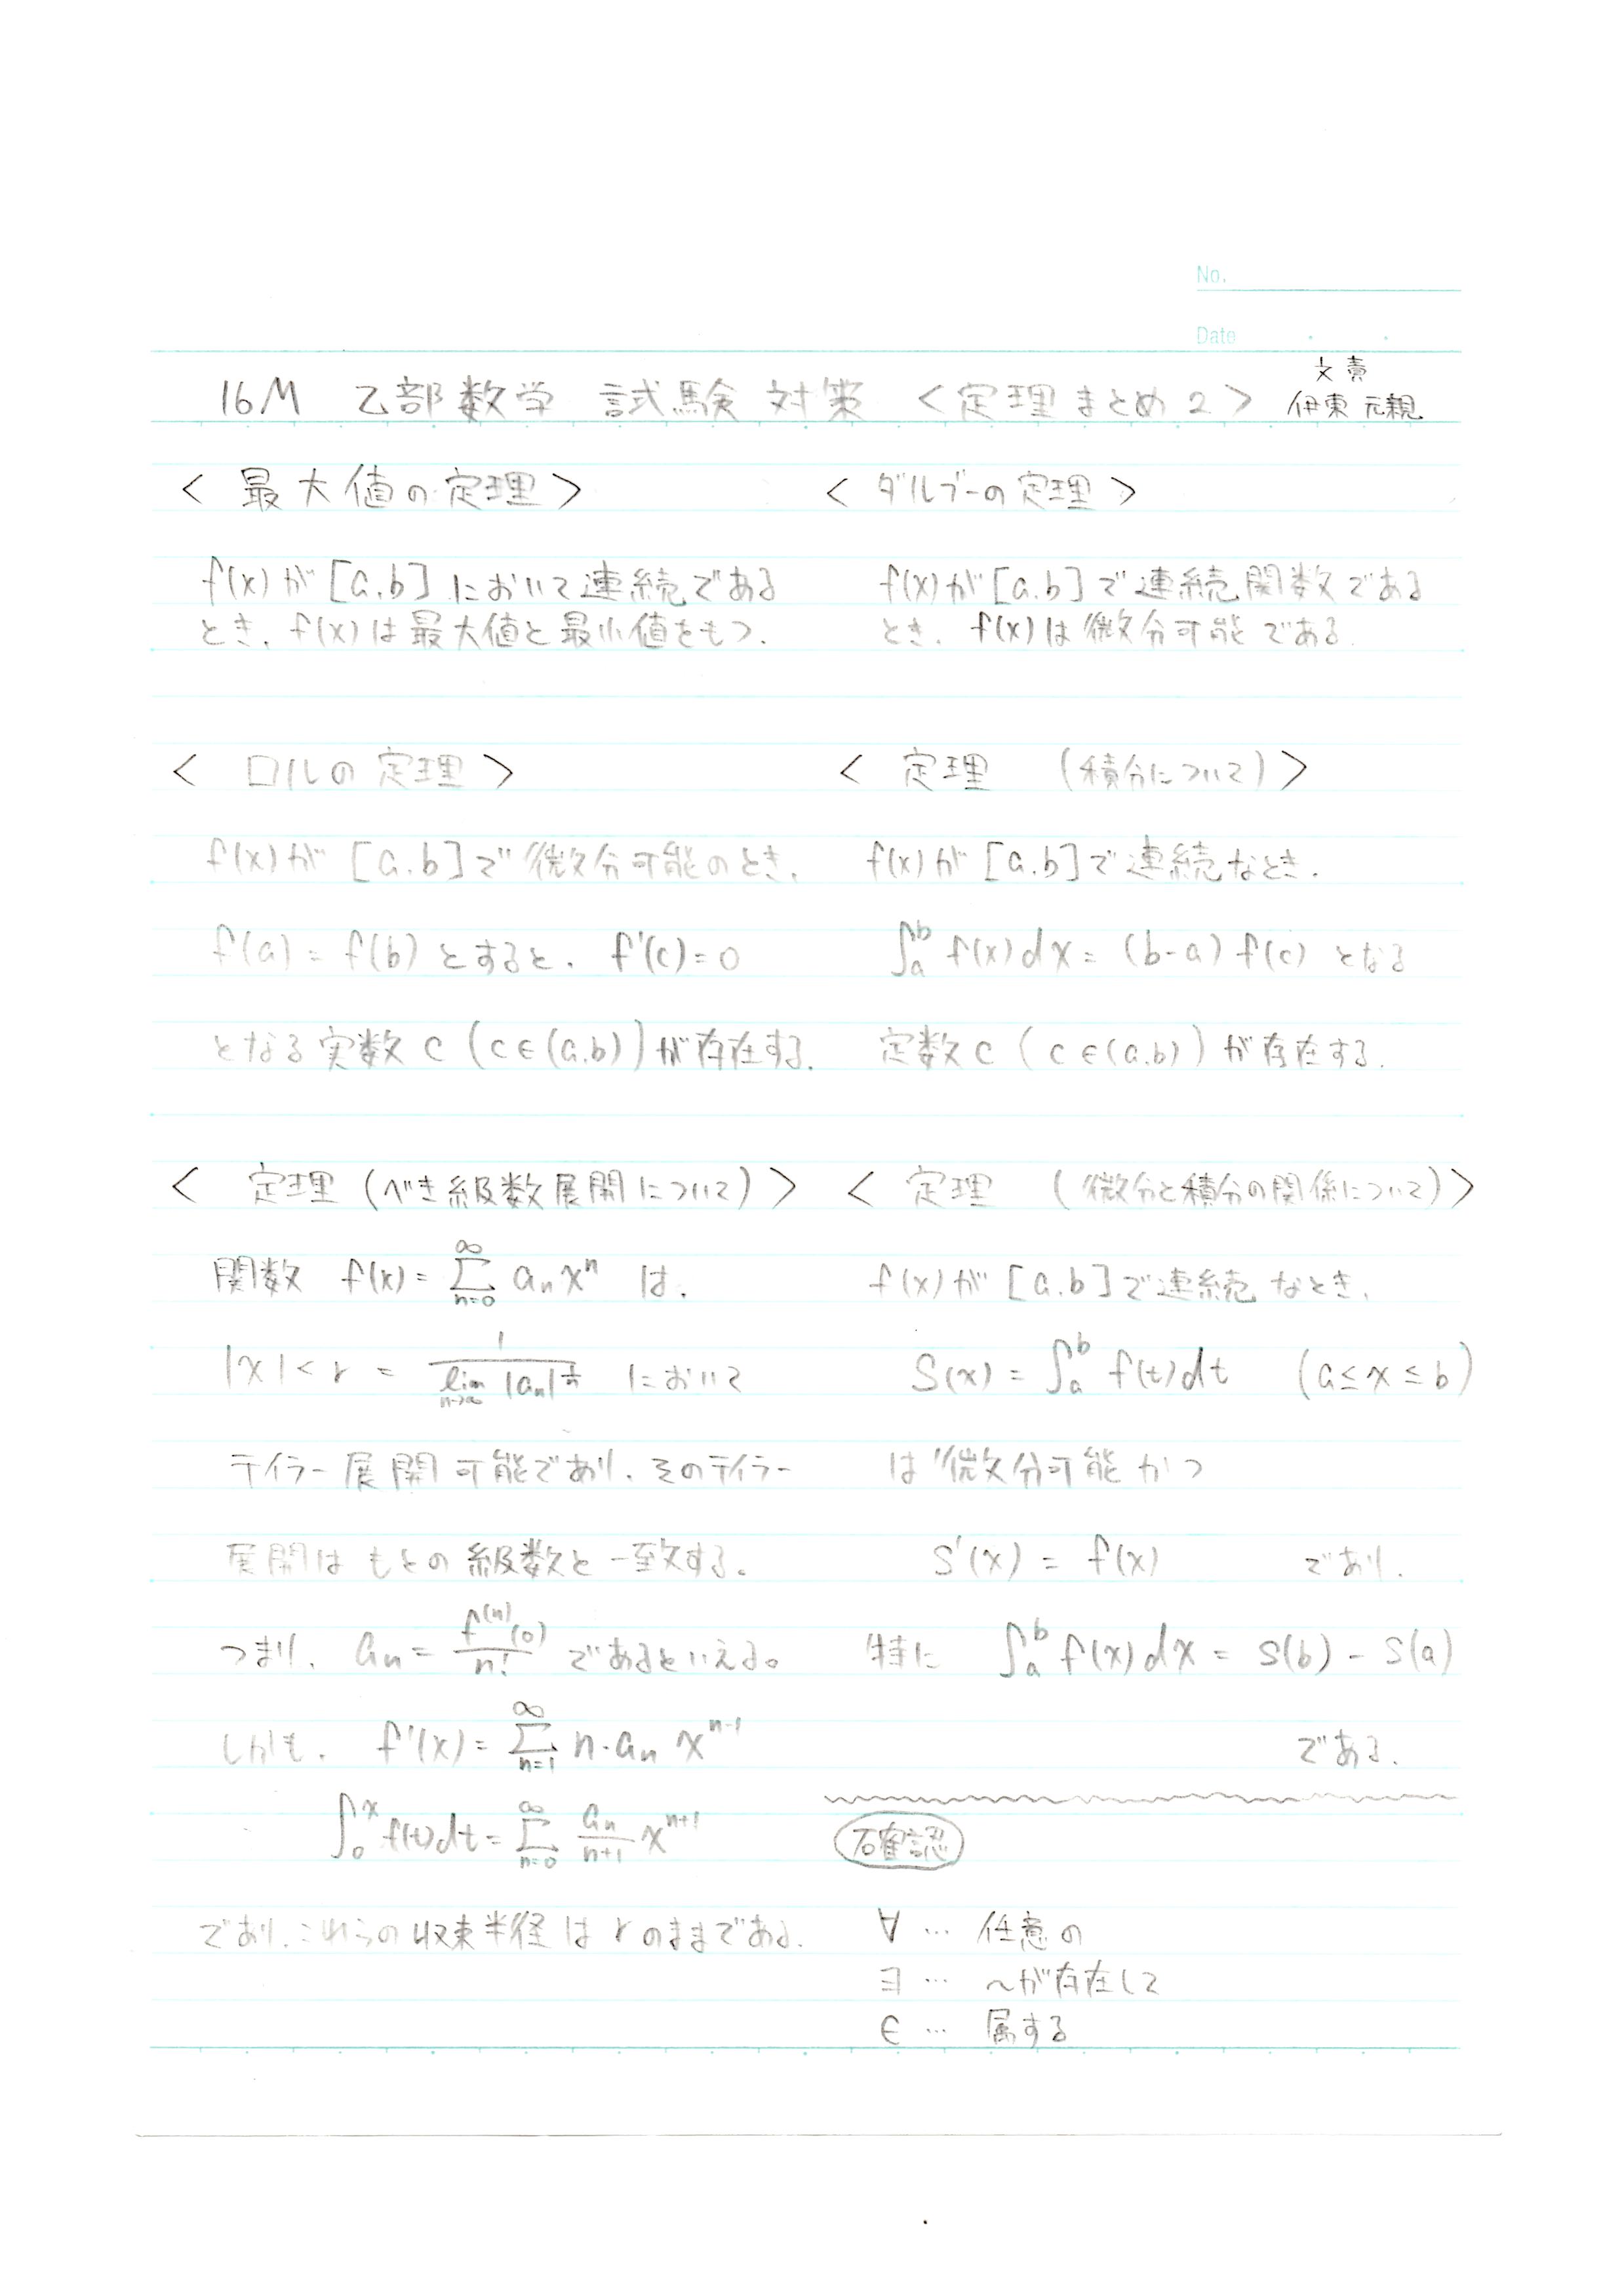 No.
Date
16M 乙部数学 試験対策 <定理まとめ2> 文責 伊東 元親
< 最大値の定理 >
f(x)が[a,b]において連続である
とき、f(x)は最大値と最小値をもつ.
< ロルの定理 >
f(x)が [a,b]で微分可能のとき、
f(a) = f(b) とすると、f'(c)=0
となる実数 c (c∈(a,b))が存在する.
< 定理 (べき級数展開について) >
関数 f(x) = Σ_{n=0}^{∞} a_n x^n は、
|x| < r = 1/(lim_{n→∞} |a_n|^{1/n}) において
テイラー展開可能であり、そのテイラー
展開はもとの級数と一致する。
つまり、a_n = f^{(n)}(0)/n! であるといえる。
しかも、f'(x) = Σ_{n=1}^{∞} n・a_n x^{n-1}
∫_0^x f(t)dt = Σ_{n=0}^{∞} a_n/(n+1) x^{n+1}
であり、これらの収束半径は r のままである.
< ダルブーの定理 >
f(x)が[a,b]で連続関数である
とき、f(x)は微分可能である.
< 定理 (積分について) >
f(x)が [a,b]で連続なとき、
∫_a^b f(x)dx = (b-a) f(c) となる
定数 c (c∈(a,b))が存在する.
< 定理 (微分と積分の関係について) >
f(x)が [a,b]で連続なとき、
S(x) = ∫_a^b f(t)dt (a≤x≤b)
は微分可能かつ
S'(x) = f(x) であり、
特に ∫_a^b f(x)dx = S(b) - S(a)
である.
確認
∀ … 任意の
∃ … ~が存在して
∈ … 属する